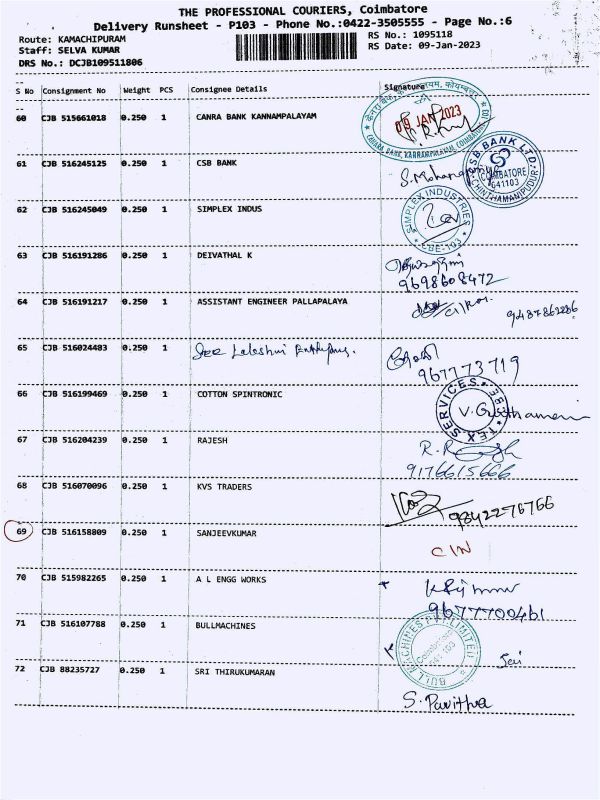 THE PROFESSIONAL COURIERS, Coimbatore
Delivery Runsheet - P103 - Phone No.:0422-3505555 - Page No.:6
Route: KAMACHIPURAM RS No.: 1095118
Staff: SELVA KUMAR RS Date: 09-Jan-2023
DRS No.: DCJB109511806
S No Consignment No Weight PCS Consignee Details Signature
60 CJB 515661018 0.250 1 CANRA BANK KANNAMPALAYAM
09 JAN 2023
61 CJB 516245125 0.250 1 CSB BANK
CSB BANK LTD.
COIMBATORE
641103
CHINTHAMANIPUDUR
62 CJB 516245049 0.250 1 SIMPLEX INDUS
SIMPLEX INDUSTRIES
CBE-103
63 CJB 516191286 0.250 1 DEIVATHAL K
9698608472
64 CJB 516191217 0.250 1 ASSISTANT ENGINEER PALLAPALAYA
9487862286
65 CJB 516024483 0.250 1
967773719
66 CJB 516199469 0.250 1 COTTON SPINTRONIC
TEX SERVICES CBE
67 CJB 516204239 0.250 1 RAJESH
9176615666
68 CJB 516070096 0.250 1 KVS TRADERS
9842276766
69 CJB 516158809 0.250 1 SANJEEVKUMAR
CIN
70 CJB 515982265 0.250 1 A L ENGG WORKS
9677700461
71 CJB 516107788 0.250 1 BULLMACHINES
BULL MACHINES PVT LIMITED
Coimbatore
641-103
Jai
72 CJB 88235727 0.250 1 SRI THIRUKUMARAN
S. Pavithra